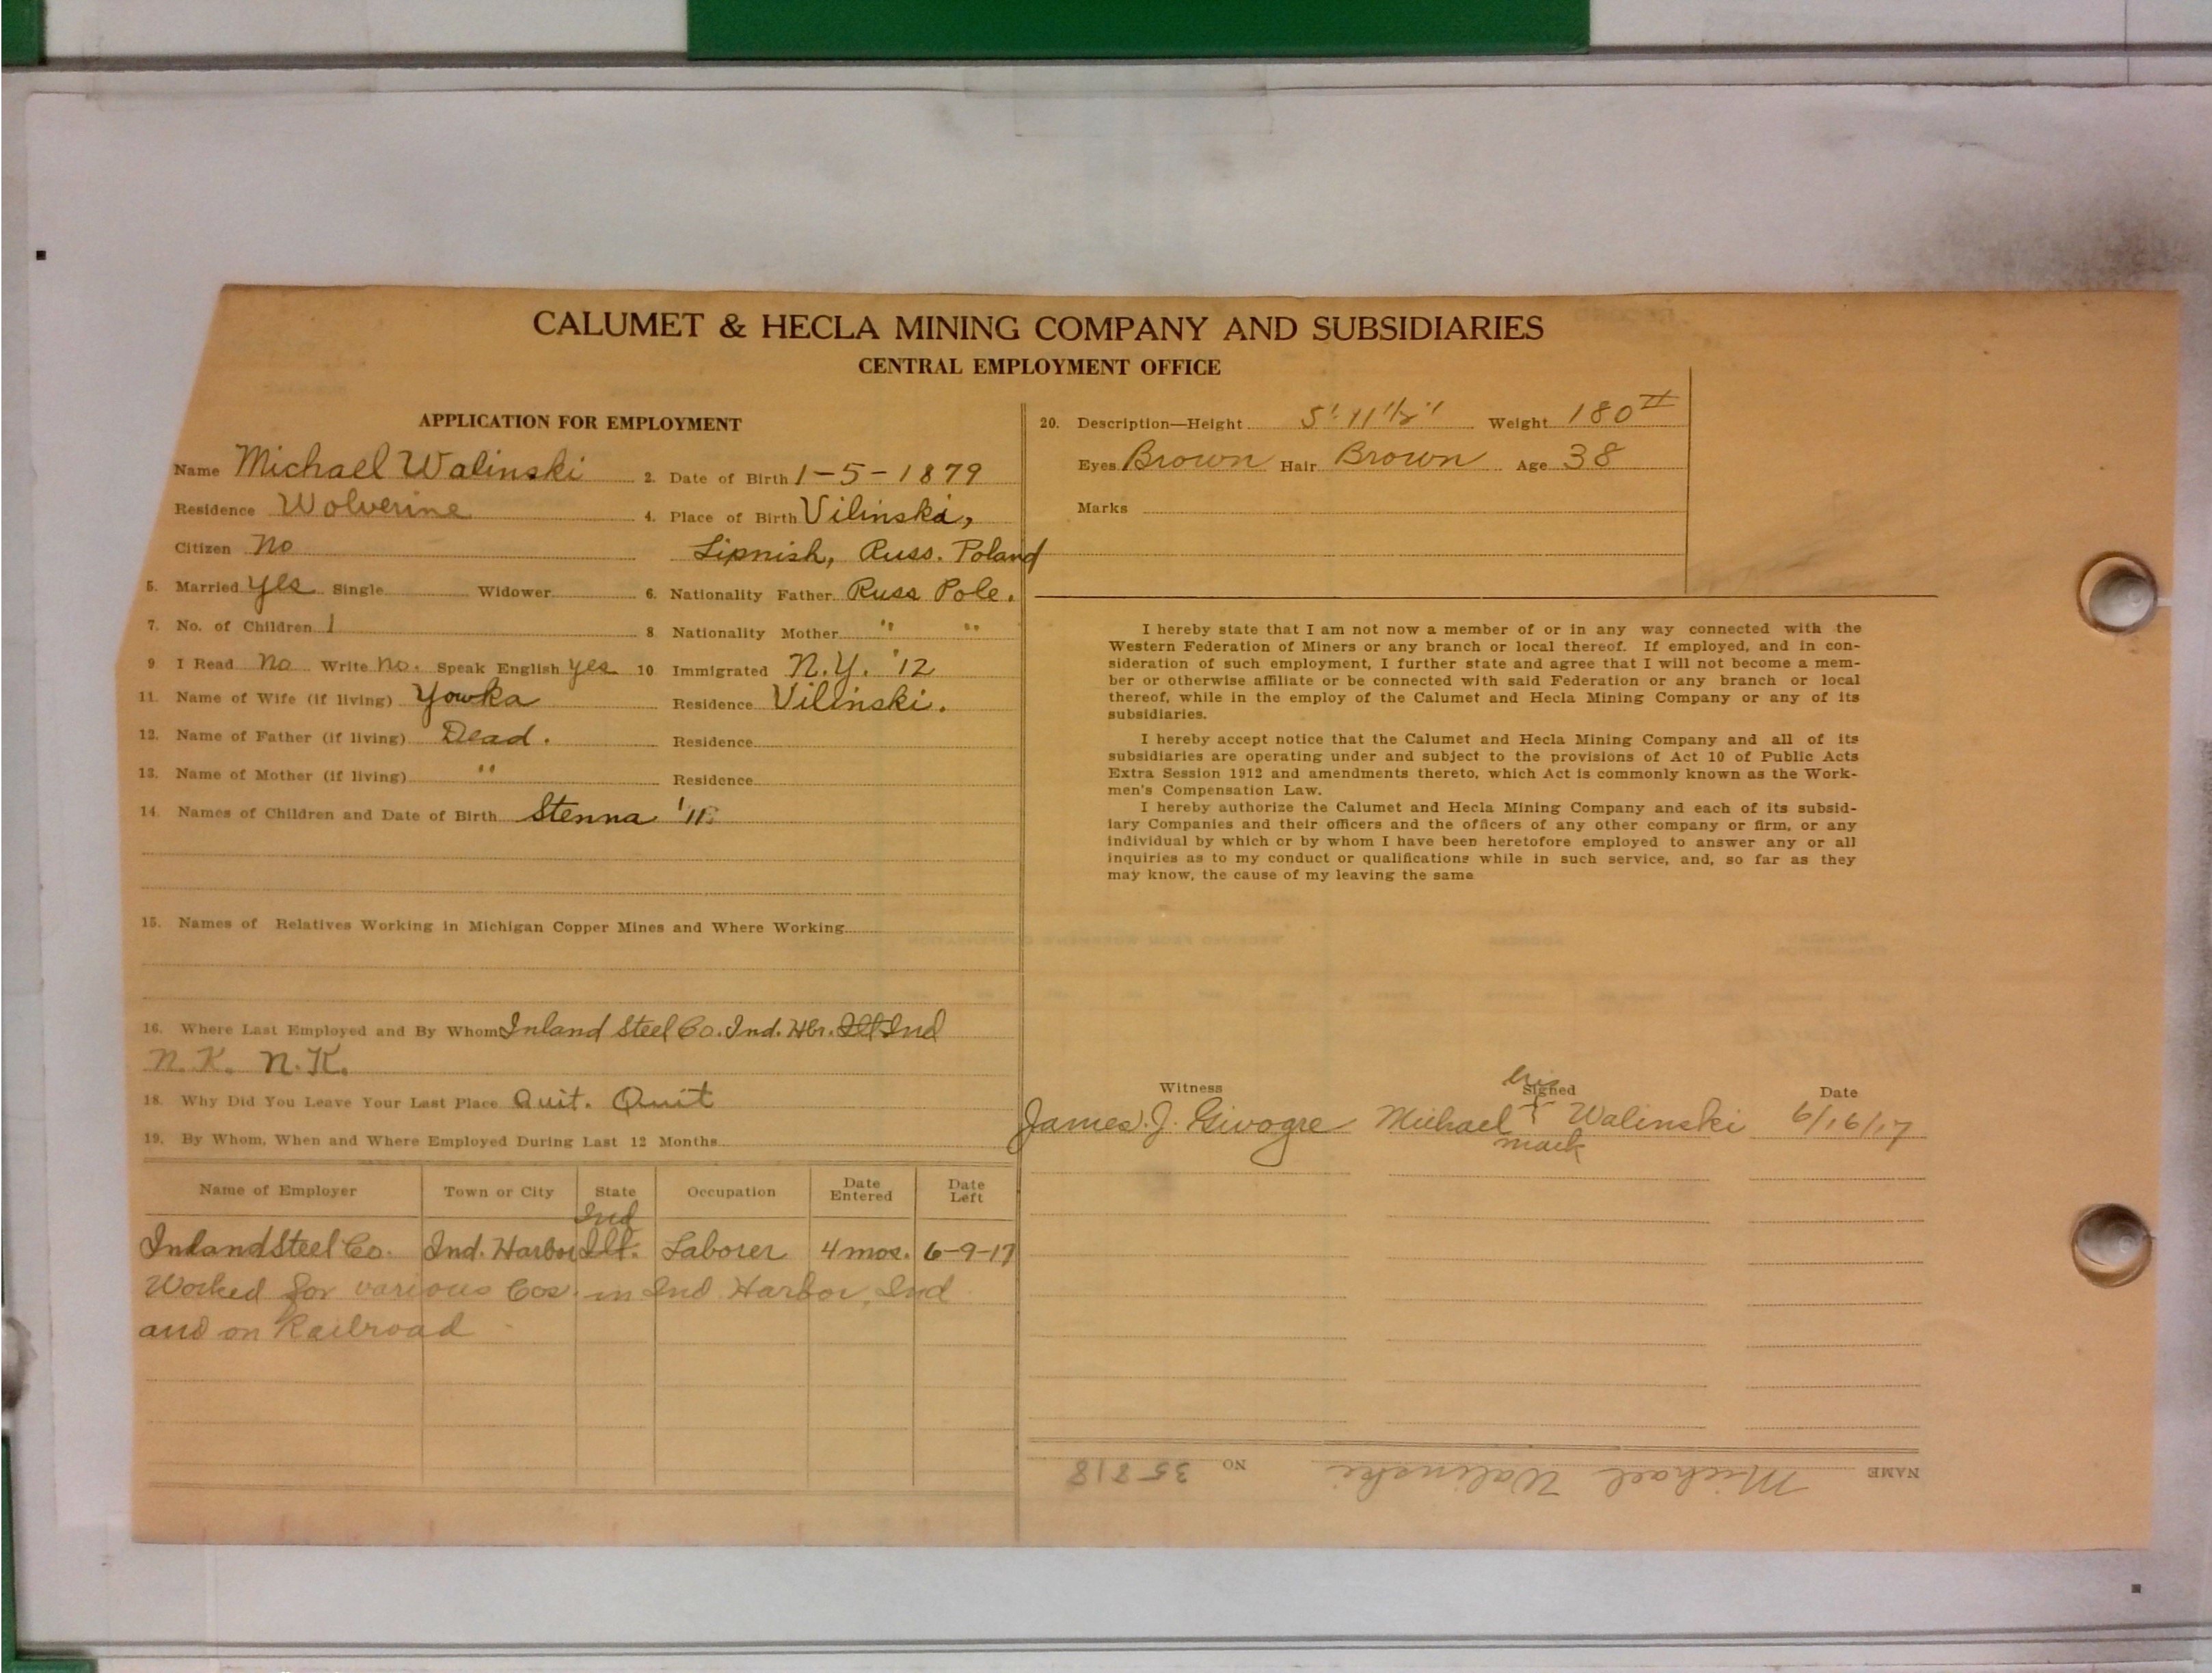 CALUMET & HECLA MINING COMPANY AND SUBSIDIARIES
CENTRAL EMPLOYMENT OFFICE
APPLICATION FOR EMPLOYMENT
Name Michael Walinski 2. Date of Birth 1-5-1879
Residence Wolverine 4. Place of Birth Vilinski,
Citizen No Lipnish, Russ. Poland
5. Married yes Single Widower 6. Nationality Father Russ Pole.
7. No. of Children 1 8 Nationality Mother " "
9 I Read no Write no. Speak English yes 10 Immigrated N.Y. '12
11. Name of Wife (if living) Yowka Residence Vilinski.
12. Name of Father (if living) Dead. Residence
13. Name of Mother (if living) " Residence
14. Names of Children and Date of Birth Stenna '11
15. Names of Relatives Working in Michigan Copper Mines and Where Working
16. Where Last Employed and By Whom Inland Steel Co. Ind. Hbr. Ill Ind
N.K. N.K.
18. Why Did You Leave Your Last Place Quit. Quit
19. By Whom, When and Where Employed During Last 12 Months
Name of Employer Town or City State Occupation Date Entered Date Left
Ind
Inland Steel Co. Ind. Harbor Ill. Laborer 4 mos. 6-9-17
Worked for various Cos. in Ind Harbor, Ind
and on Railroad
20. Description—Height 5' 11 1/2" Weight 180 #
Eyes Brown Hair Brown Age 38
Marks
I hereby state that I am not now a member of or in any way connected with the
Western Federation of Miners or any branch or local thereof. If employed, and in con-
sideration of such employment, I further state and agree that I will not become a mem-
ber or otherwise affiliate or be connected with said Federation or any branch or local
thereof, while in the employ of the Calumet and Hecla Mining Company or any of its
subsidiaries.
I hereby accept notice that the Calumet and Hecla Mining Company and all of its
subsidiaries are operating under and subject to the provisions of Act 10 of Public Acts
Extra Session 1912 and amendments thereto, which Act is commonly known as the Work-
men's Compensation Law.
I hereby authorize the Calumet and Hecla Mining Company and each of its subsid-
iary Companies and their officers and the officers of any other company or firm, or any
individual by which or by whom I have been heretofore employed to answer any or all
inquiries as to my conduct or qualifications while in such service, and, so far as they
may know, the cause of my leaving the same
Witness Signed Date
his
James J. Givogre Michael + Walinski 6/16/17
mark
NAME Michael Walinski NO 35818